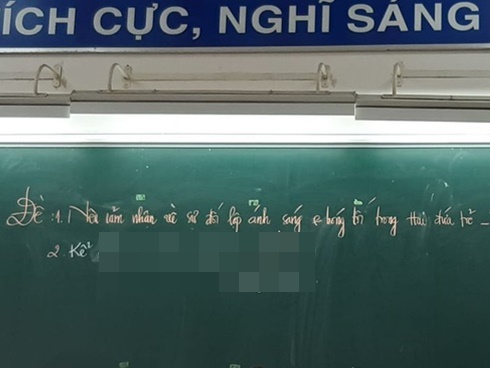 ÍCH CỰC, NGHĨ SÁNG
Đề: 1. Nêu cảm nhận về sự đối lập ánh sáng & bóng tối trong Hai đứa trẻ -
2. Kể